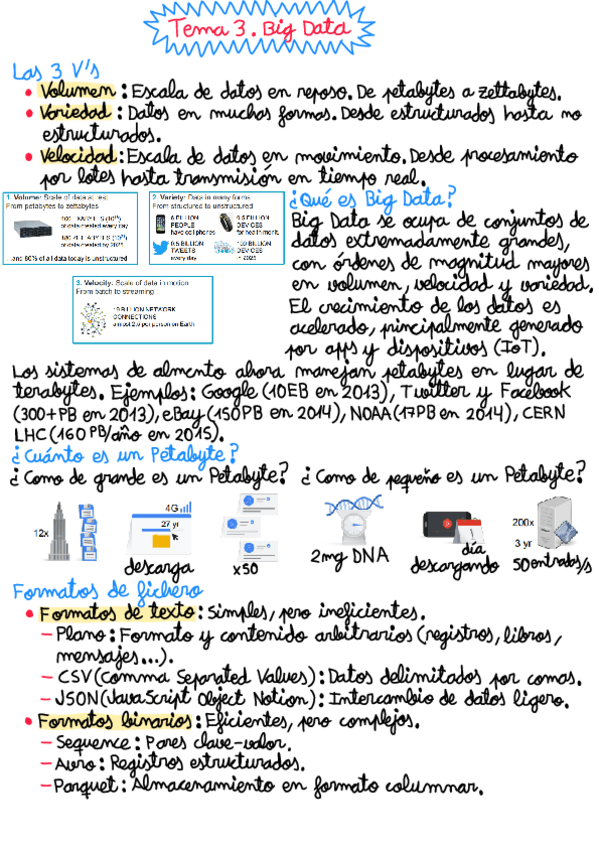 Tema 3. Big Data
Las 3 V's
• Volumen: Escala de datos en reposo. De petabytes a zettabytes.
• Variedad: Datos en muchas formas. Desde estructurados hasta no
estructurados.
• Velocidad: Escala de datos en movimiento. Desde procesamiento
por lotes hasta transmisión en tiempo real.
1. Volume: Scale of data at rest
From petabytes to zettabytes
...and 80% of all data today is unstructured
2. Variety: Data in many forms
From structures to unstructured
6 BILLION
PEOPLE
have cell phones
0.5 BILLION
TWEETS
every day
0.5 BILLION
DEVICES
DEVICES
3. Velocity: Scale of data in motion
From batch to streaming
BILLION NETWORK
CONNECTIONS
per person on Earth
¿Qué es Big Data?
Big Data se ocupa de conjuntos de
datos extremadamente grandes,
con órdenes de magnitud mayores
en volumen, velocidad y variedad.
El crecimiento de los datos es
acelerado, principalmente generado
por apps y dispositivos (IoT).
Los sistemas de almcnto ahora manejan petabytes en lugar de
terabytes. Ejemplos: Google (10EB en 2013), Twitter y Facebook
(300+PB en 2013), eBay (150PB en 2014), NOAA (17PB en 2014), CERN
LHC (160 PB/año en 2015).
¿Cuánto es un Petabyte?
¿Como de grande es un Petabyte? ¿Como de pequeño es un Petabyte?
12x
4G
27 yr
descarga
x50
2mg DNA
día
descargando
200x
3 yr
50entradas/s
Formatos de fichero
• Formatos de texto: Simples, pero ineficientes.
— Plano: Formato y contenido arbitrarios (registros, libros,
mensajes...).
— CSV (Comma Separated Values): Datos delimitados por comas.
— JSON (JavaScript Object Notion): Intercambio de datos ligero.
• Formatos binarios: Eficientes, pero complejos.
— Sequence: Pares clave-valor.
— Avro: Registros estructurados.
— Parquet: Almacenamiento en formato columnar.